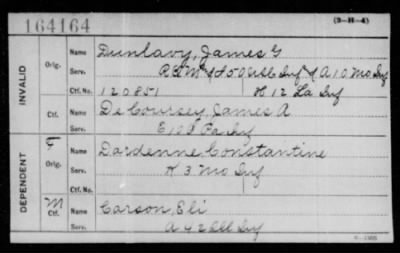 164164
(3-H-4)
INVALID
Orig.
Name Dunlavy, James G
Serv. & A 10 Mo Inf
Ctf. No. 120851 K 12 La Inf
Ctf.
Name De Coursey, James A
Serv. Pa Inf
DEPENDENT
F
Orig.
Name Dardenne Constantine
Serv. K 3 Mo Inf
Ctf. No.
M
Ctf.
Name Carson, Eli
Serv. A 42 Ill Inf